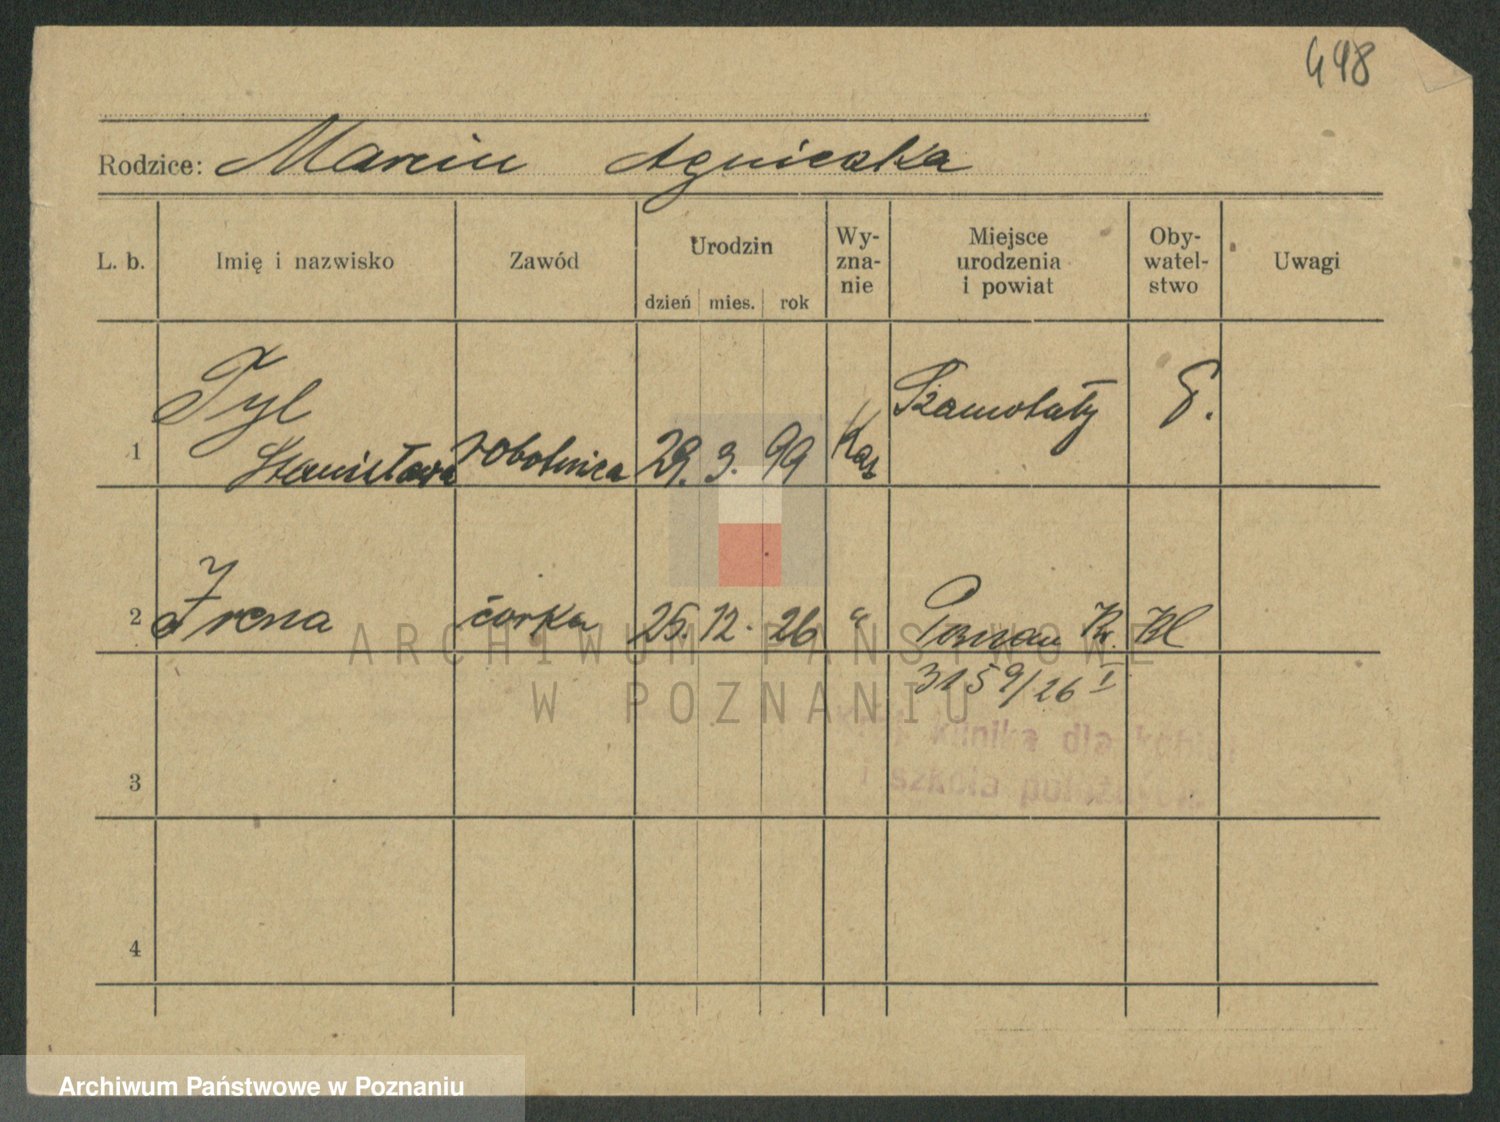 448
Rodzice: Marcin Agnieszka
L. b. Imię i nazwisko Zawód Urodzin dzień mies. rok Wy-zna-nie Miejsce urodzenia i powiat Oby-watel-stwo Uwagi
1 Tyl Stanisława robotnica 29. 3. 99 Kat Szamotuły
2 Irena córka 25. 12. 26 " Poznań
3159/26 I
ARCHIWUM PAŃSTWOWE
W POZNANIU
klinika dla kobiet
i szkoła położnych
3
4
Archiwum Państwowe w Poznaniu